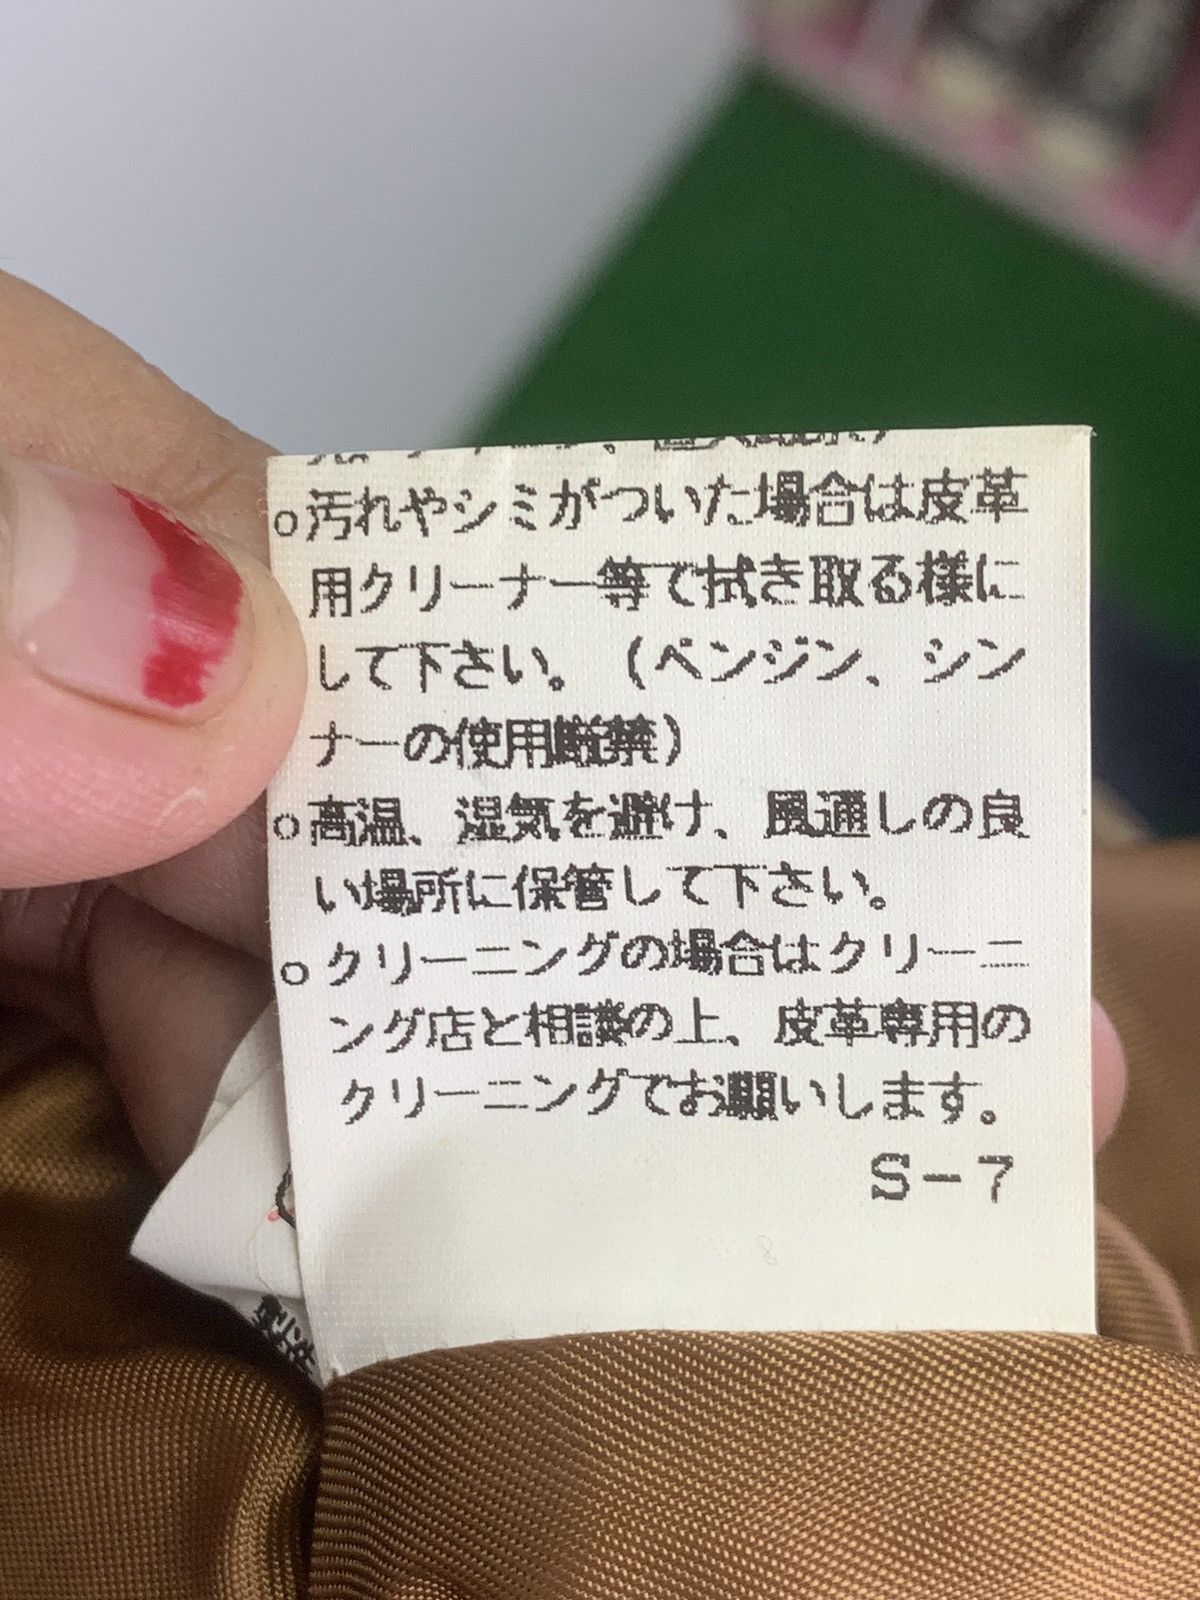 ○汚れやシミがついた場合は皮革
用クリーナー等で拭き取る様に
して下さい。（ベンジン、シン
ナーの使用厳禁）
○高温、湿気を避け、風通しの良
い場所に保管して下さい。
○クリーニングの場合はクリーニ
ング店と相談の上、皮革専用の
クリーニングでお願いします。
S-7